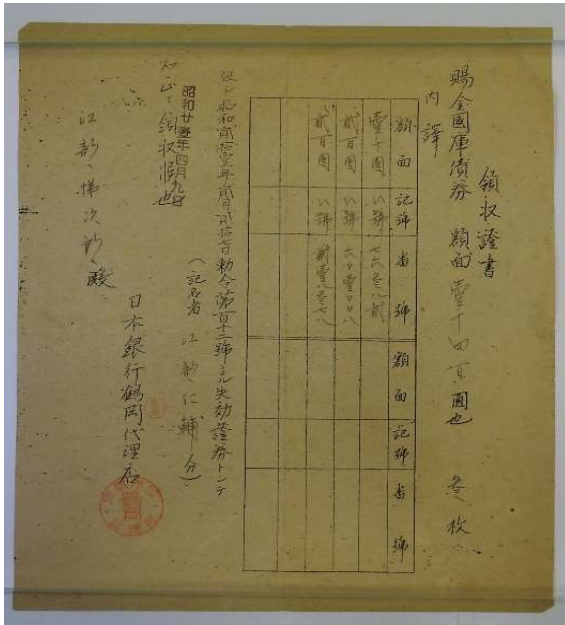 領収證書
賜金國庫債券 額面 壹千四百圓也 叁枚
内譯
額面 記號 番號 額面 記號 番號
壹千圓 い號 七六叁八貳
貳百圓 い號
貳百圓 い號 貳壹八叁七八
但シ昭和貳拾壹年貳月貳拾七日勅令第百十二號ニヨル失効證券トシテ
(記名者 江部仁輔 分)
右正ニ領収候也
昭和廿壹年四月九日
日本銀行鶴岡代理店
江部 悌次郎 殿